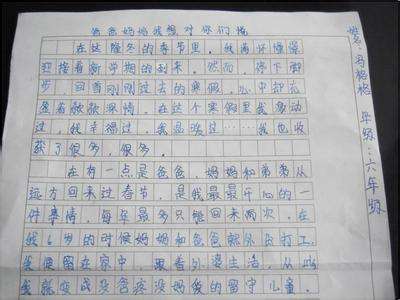 爸爸妈妈我想对你们说
在这隆冬的季节里，我满怀憧憬
迎接着新学期的到来。然而，停下脚
步，回首刚刚过去的寒假，心中却充
着款款深情。在这个寒假里我感动
过，我幸福过，我
过……我也收
获了很多，很多。
在有一点是爸爸，妈妈和弟弟从
远方回来过春节，是我最最开心的一
件事情，每年最多只能回来两次，在
我6岁的时候妈妈和爸爸就外出打工
我便留在家中，跟着外婆生活，从此
我就变成没爸疼没妈爱的留守儿童。
姓名：马格格 年级：六年级